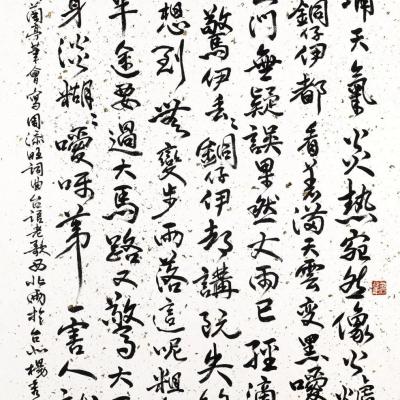 天氣炎熱宛然像火
銅仔伊都看著滿天雲變黑噯
門無疑誤果然大雨已經滴
驚伊丟〻銅仔伊都講阮失
想到無變步雨落這呢粗
半途要過大馬路又驚大
身淡糊〻噯呀第一害人
蘭亭筆會寫周添旺詞曲台語老歌西北雨於台北楊